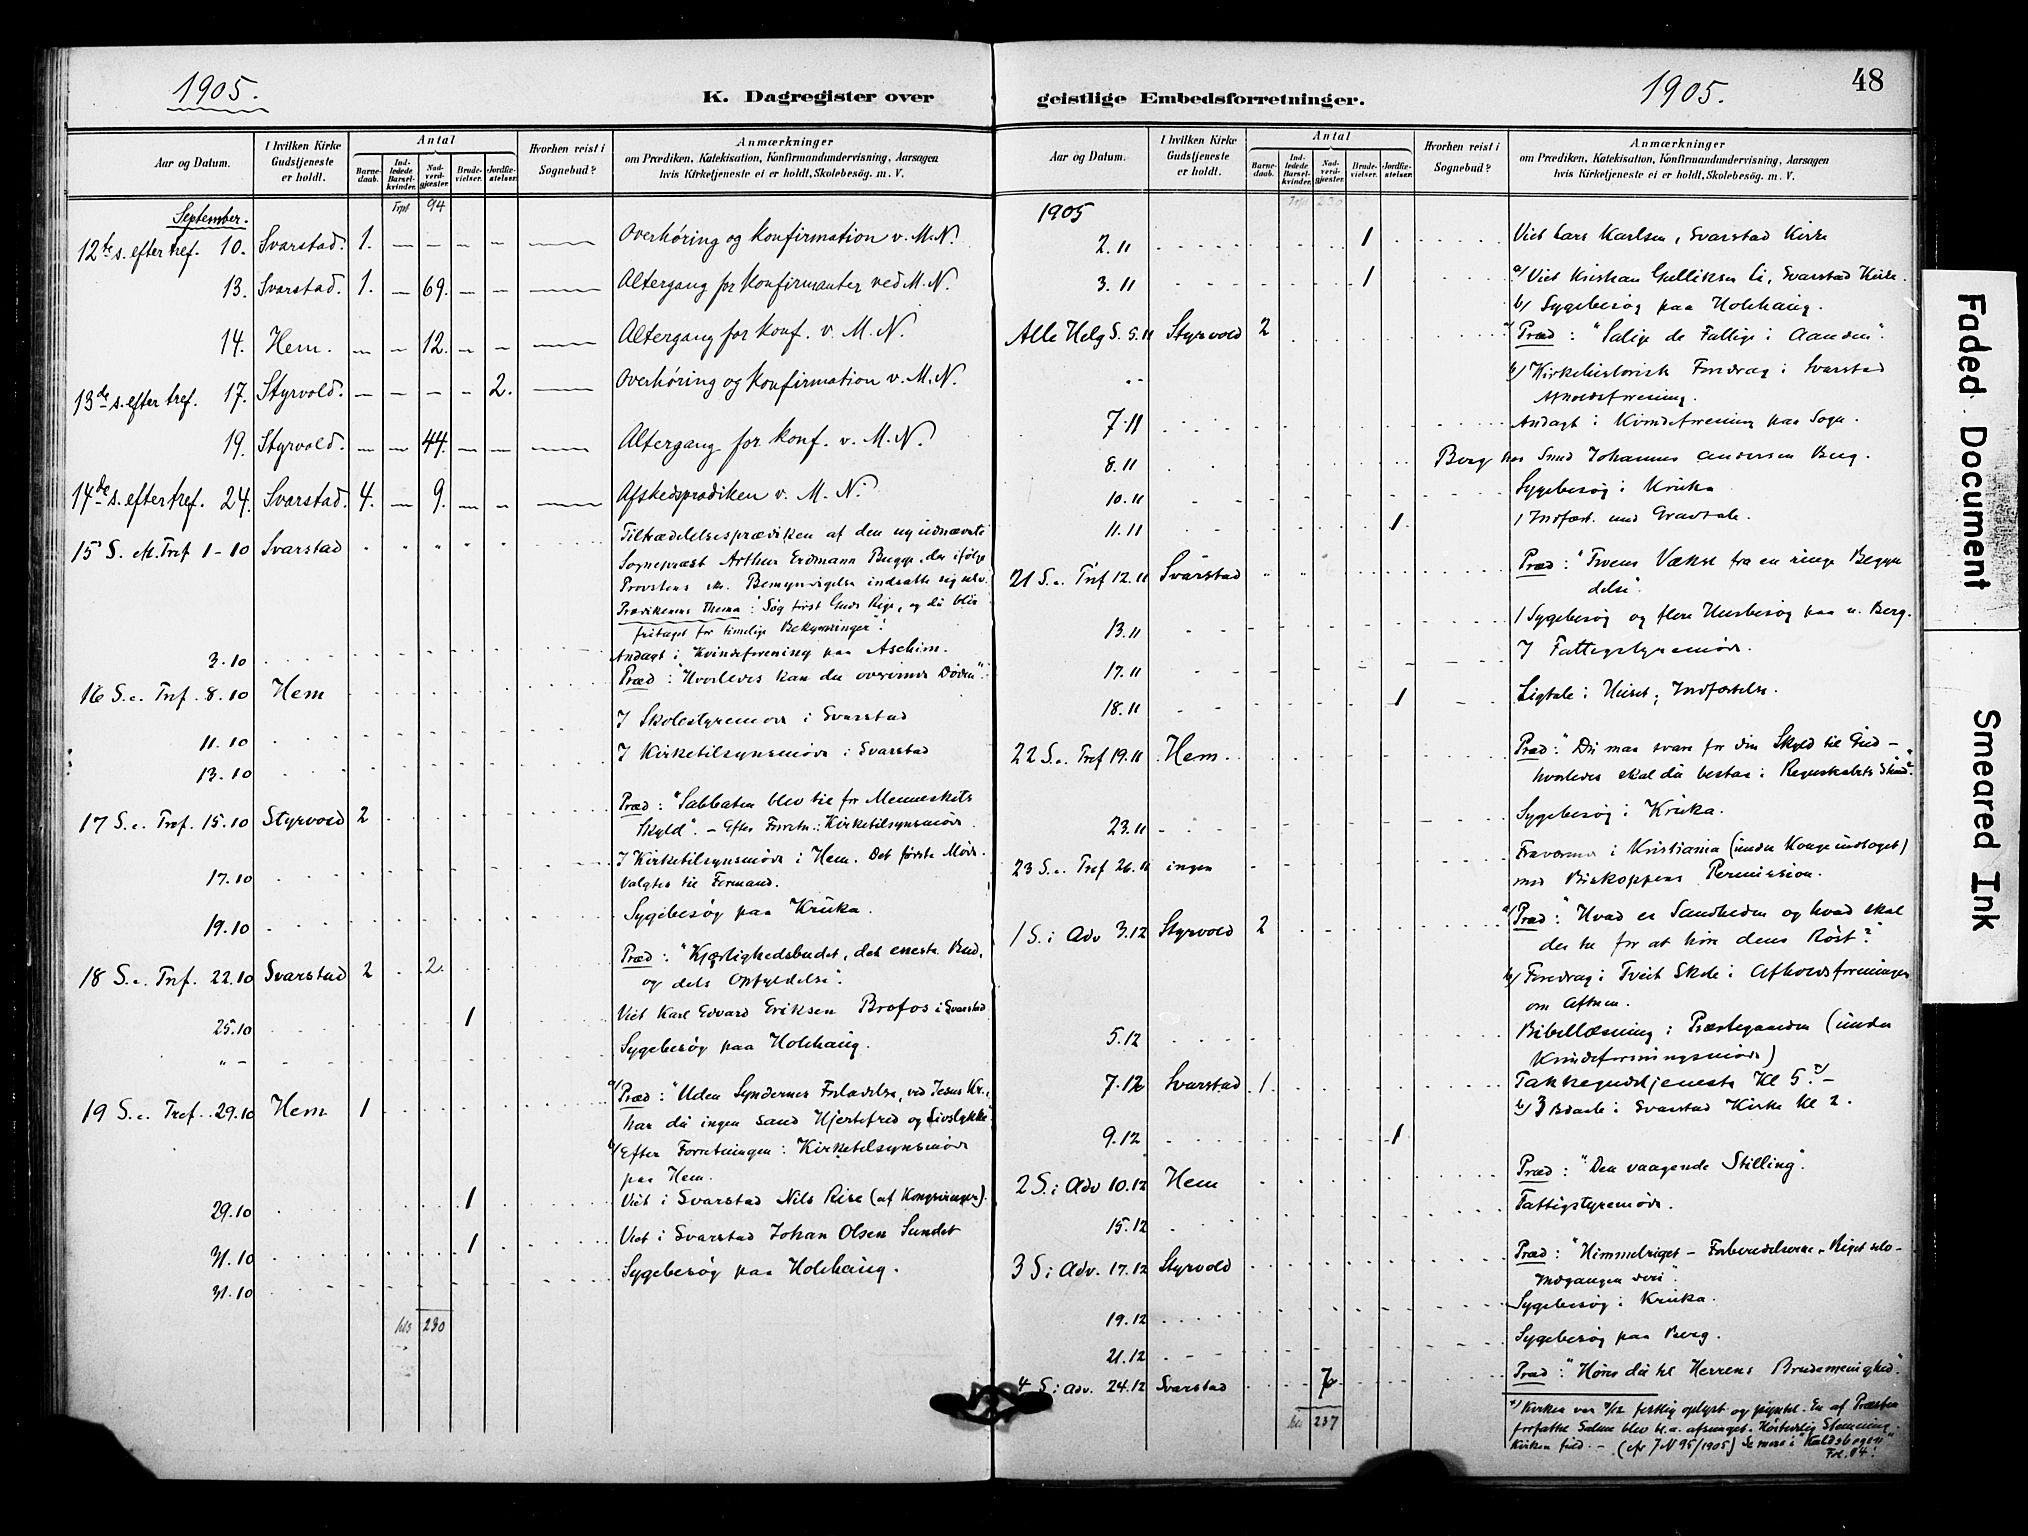 1905.
K. Dagregister over
Aar og Datum.
I hvilken Kirke Gudstjeneste er holdt.
Antal
Barnedaab.
Indledede Barselkvinder.
Nadverdgjæster.
Brudevielser.
Jordfæstelser.
Hvorhen reist i Sognebud?
Anmærkninger
om Prædiken, Katekisation, Konfirmandundervisning, Aarsagen
hvis Kirketjeneste ei er holdt, Skolebesøg. m. V.
September. Trpt 94
12te s. efter tref. 10. Svarstad. 1. — — — — — Overhøring og konfirmation v. M. N.
13. Svarstad. 1. — 69. — — — Altergang for konfirmanter ved M. N.
14. Hem. — — 12. — — — Altergang for konf. v. M. N.
13de s. efter tref. 17. Styrvold. — — — — 2. — Overhøring og konfirmation v. M. N.
19. Styrvold. — — 44. — — — Altergang for konf. v. M. N.
14de s. efter tref. 24. Svarstad. 4. — 9. — — — Afskedsprædiken v. M. N.
15 S. e. Tref 1-10 Svarstad Tiltrædelsesprædiken af den nyudnævnte
Sognepræst Arthur Erdmann Bugge, der ifølge
Provstens Bemyndigelse indsatte sig selv.
Prædikenens Thema: "Søg først Guds Rige, og du blir
fritaget for timelige Bekymringer".
3.10 Andagt i Kvindeforening paa Aschim.
16 S. e. Tref. 8.10 Hem Præd: "Hvorledes kan du overvinde Døden".
11.10 I Skolestyremøde i Svarstad
13.10 I Kirketilsynsmøde i Svarstad
17 S. e. Tref. 15.10 Styrvold 2 Præd: "Sabbaten blev til for Menneskets
Skyld". – Efter Forretn.: Kirketilsynsmøde.
17.10 I Kirketilsynsmøde i Hem. Det første Møde.
Valgtes til Formand.
19.10 Sygebesøg paa Kruka.
18 S. e. Tref. 22.10 Svarstad 2 2. Præd: "Kjærlighedsbudet, det eneste Bud,
og dets Opfyldelse".
25.10 1 Viet Karl Edvard Eriksen Brofos i Svarstad
" – Sygebesøg paa Holehaug.
19 S. e. Tref. 29.10 Hem 1 a/ Præd: "Uden Syndernes Forladelse, ved Jesus Kr.,
har du ingen sand Hjertefred og Livslykke".
b/ Efter Forretningen: Kirketilsynsmøde
paa Hem.
29.10 1 Viet i Svarstad Nils Rise (af Kongsvinger).
31.10 1 Viet i Svarstad Johan Olsen Sundet
31.10 Sygebesøg paa Holehaug.
230
geistlige Embedsforretninger.
1905.
48
Aar og Datum.
I hvilken Kirke Gudstjeneste er holdt.
Antal
Barnedaab.
Indledede Barselkvinder.
Nadverdgjæster.
Brudevielser.
Jordfæstelser.
Hvorhen reist i Sognebud?
Anmærkninger
om Prædiken, Katekisation, Konfirmandundervisning, Aarsagen
hvis Kirketjeneste ei er holdt, Skolebesøg. m. V.
1905 Trpt 230
2.11 1 Viet Lars Karlsen, Svarstad Kirke
3.11 1 a/ Viet Kristian Gulliksen Li, Svarstad Kirke.
b/ Sygebesøg paa Holehaug.
Alle Helg S. 5.11 Styrvold 2 a/ Præd: "Salige de Fattige i Aanden".
" b/ Kirkehistorisk Foredrag i Svarstad
Afholdsforening.
7.11 Andagt i Kvindeforening paa Sogn.
8.11 Berg hos Smed Johannes Andersen Berg.
10.11 Sygebesøg i Kruka
11.11 1 / Indfæst. med Gravtale.
21 S. e. Tref 12.11 Svarstad Præd: "Troens Vækst fra en ringe Begyn
delse".
13.11 / Sygebesøg og flere Husbesøg paa n. Berg.
17.11 I Fattigstyremøde.
18.11 1 Ligtale i Huset; Indfæstelse.
22 S. e. Tref 19.11 Hem. Præd: "Du maa svare for din Skyld til Gud –
hvorledes skal du bestaa i Regnskabets Stund?"
23.11 Sygebesøg i Kruka.
23 S. e. Tref 26.11 ingen Fraværende i Kristiania (under Kongeindtoget)
med Biskoppens Permission.
1 S. i Adv 3.12 Styrvold 2 a/ Præd: "Hvad er Sandheden og hvad skal
der til for at høre dens Røst?"
b/ Foredrag i Tveit Skole i Afholdsforeningen
om Aftnen.
5.12 Bibellæsning i Præstegaarden (under
Kvindeforeningsmøde)
7.12 Svarstad 1. Takkegudstjeneste Kl 5. –
b/ 3 Bdaab i Svarstad Kirke Kl 2.
9.12 1
2 S. i Adv 10.12 Hem Præd: "Den vaagende Stilling".
15.12 Fattigstyremøde.
3 S. i Adv. 17.12 Styrvold Præd: "Himmelriget – Forberedelserne – Riget selv –
Indgangen deri".
19.12 Sygebesøg i Kruka.
21.12 Sygebesøg paa Berg.
4 S. i Adv. 24.12 Svarstad 7 Præd: "Hører du til Herrens Brudemenighed".
237
Kirken var 7/12 festlig oplyst og pyntet. En af Præsten
forfattet Salme blev bl.a. afsunget. Høitidelig Stemning.
Kirken fuld. – (cfr J N 95/1905) Se mere i "Kaldsbogen"
Fol. 84.
Faded Document
Smeared Ink